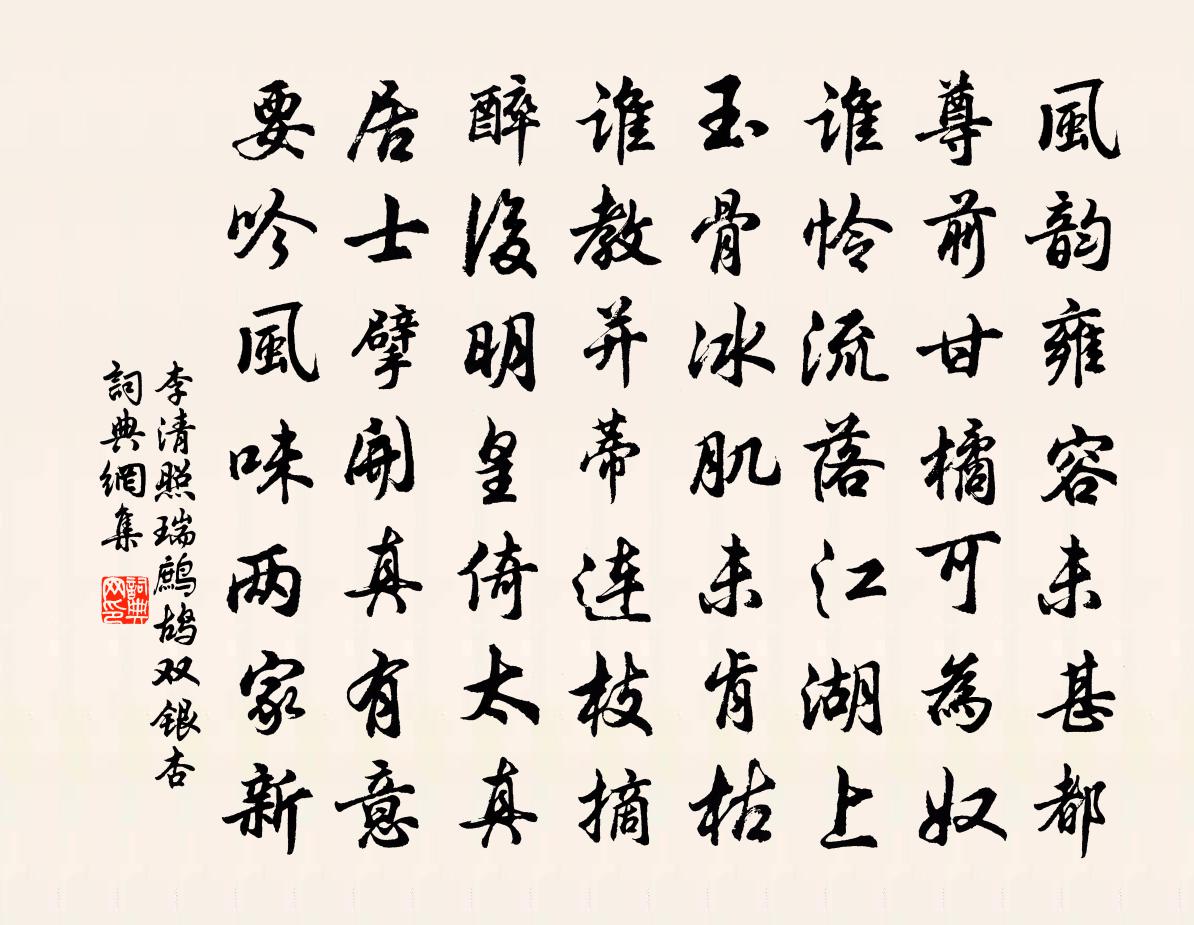 風韵雍容未甚都
尊前甘橘可為奴
誰怜流落江湖上
玉骨冰肌未肯枯
誰教并蒂連枝摘
醉後明皇倚太真
居士擘開真有意
要吟風味两家新
李清照瑞鷓鴣双銀杏
詞典網集
詞典网印